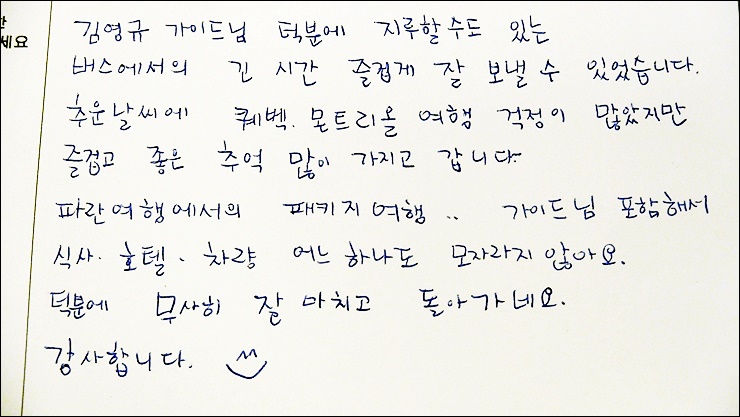 세요
김영규 가이드님 덕분에 지루할 수도 있는
버스에서의 긴 시간 즐겁게 잘 보낼 수 있었습니다.
추운날씨에 퀘벡. 몬트리올 여행 걱정이 많았지만
즐겁고 좋은 추억 많이 가지고 갑니다.
파란여행에서의 패키지여행 .. 가이드님 포함해서
식사. 호텔. 차량 어느 하나도 모자라지 않아요.
덕분에 무사히 잘 마치고 돌아가네요.
감사합니다.